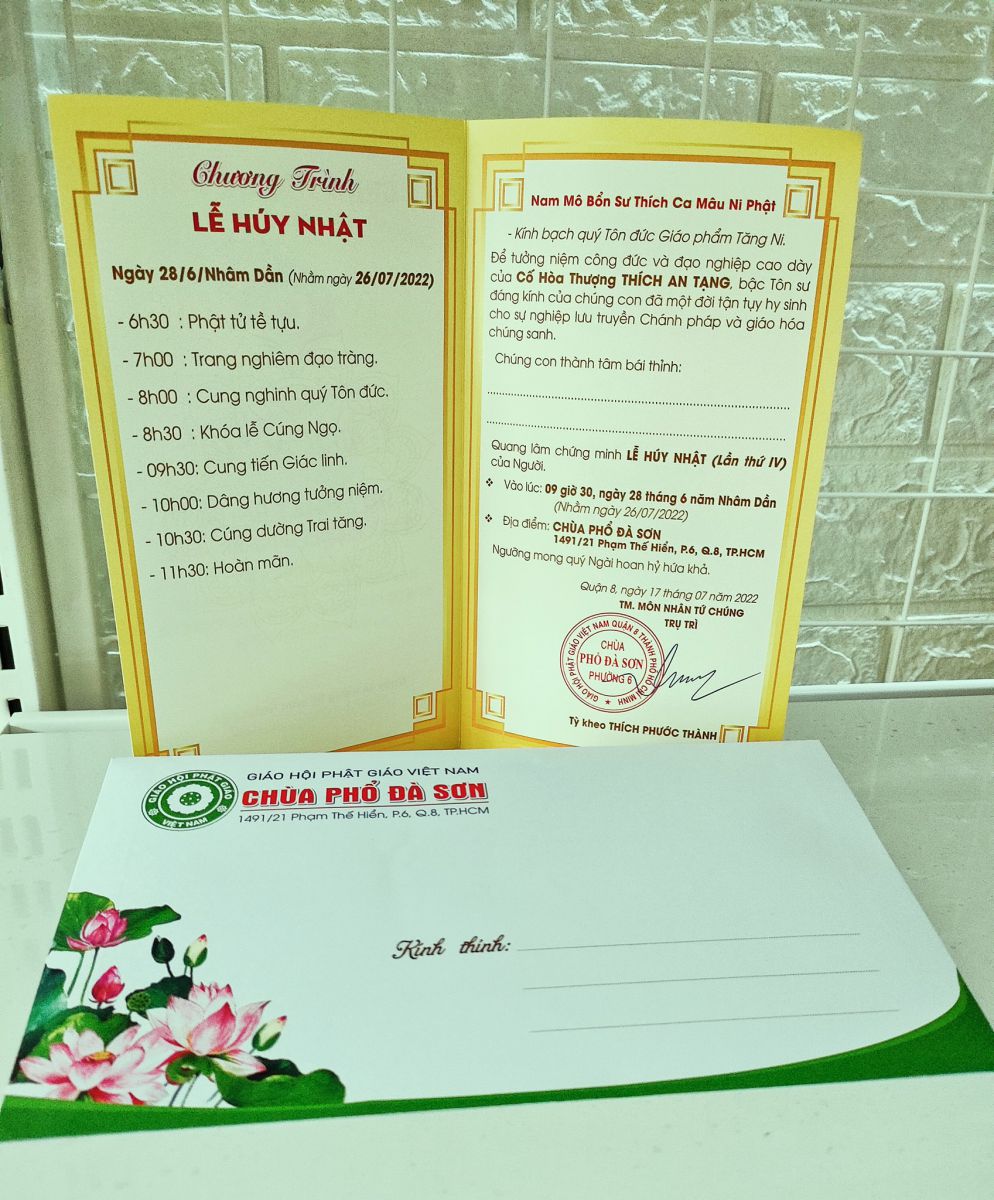 Chương Trình
LỄ HÚY NHẬT
Ngày 28/6/Nhâm Dần (Nhằm ngày 26/07/2022)
- 6h30 : Phật tử tề tựu.
- 7h00 : Trang nghiêm đạo tràng.
- 8h00 : Cung nghinh quý Tôn đức.
- 8h30 : Khóa lễ Cúng Ngọ.
- 09h30: Cung tiến Giác linh.
- 10h00: Dâng hương tưởng niệm.
- 10h30: Cúng dường Trai tăng.
- 11h30: Hoàn mãn.
Nam Mô Bổn Sư Thích Ca Mâu Ni Phật
- Kính bạch quý Tôn đức Giáo phẩm Tăng Ni.
Để tưởng niệm công đức và đạo nghiệp cao dày
của Cố Hòa Thượng THÍCH AN TẠNG, bậc Tôn sư
đáng kính của chúng con đã một đời tận tụy hy sinh
cho sự nghiệp lưu truyền Chánh pháp và giáo hóa
chúng sanh.
Chúng con thành tâm bái thỉnh:
Quang lâm chứng minh LỄ HÚY NHẬT (Lần thứ IV)
của Người.
❖ Vào lúc: 09 giờ 30, ngày 28 tháng 6 năm Nhâm Dần
(Nhằm ngày 26/07/2022)
❖ Địa điểm: CHÙA PHỔ ĐÀ SƠN
1491/21 Phạm Thế Hiển, P.6, Q.8, TP.HCM
Ngưỡng mong quý Ngài hoan hỷ hứa khả.
Quận 8, ngày 17 tháng 07 năm 2022
TM. MÔN NHÂN TỨ CHÚNG
TRỤ TRÌ
GIÁO HỘI PHẬT GIÁO VIỆT NAM QUẬN 8 THÀNH PHỐ HỒ CHÍ MINH
CHÙA
PHỔ ĐÀ SƠN
PHƯỜNG 6
Tỳ kheo THÍCH PHƯỚC THÀNH
GIÁO HỘI PHẬT GIÁO
VIỆT NAM
GIÁO HỘI PHẬT GIÁO VIỆT NAM
CHÙA PHỔ ĐÀ SƠN
1491/21 Phạm Thế Hiển, P.6, Q.8, TP.HCM
Kính thỉnh: